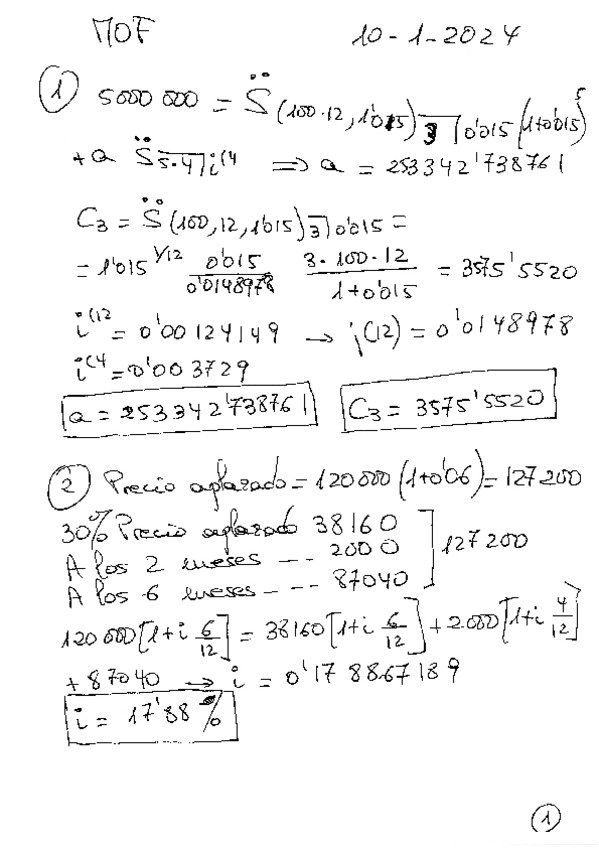 MOF 10-1-2024
① 5000 000 = S̈ (100·12, 1'015) 3⌉ 0'015 (1+0'015)⁵
+ a S̈ 5·4⌉ i⁽⁴ ⟹ a = 253342'738761
C₃ = S̈ (100, 12, 1'015) 3⌉ 0'015 =
= 1'015^(1/12) 0'015/0'0148978 3·100·12/1+0'015 = 3575'5520
i⁽¹² = 0'00124149 → j(12) = 0'0148978
i⁽⁴ = 0'003729
a = 253342'738761 C₃ = 3575'5520
② Precio aplazado = 120 000 (1+0'06) = 127 200
30% Precio aplazado 38160
A los 2 meses --- 2000 ] 127 200
A los 6 meses --- 87040
120 000 [1+i 6/12] = 38160 [1+i 6/12] + 2000 [1+i 4/12]
+ 87040 → i = 0'178867189
i = 17'88 %
①